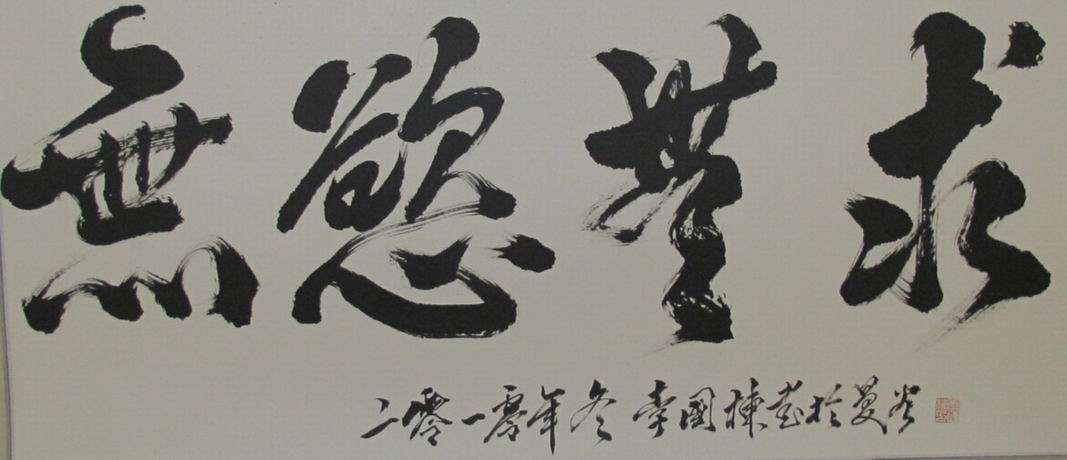 無慾無求
二零一零年冬李國棟書於曼谷